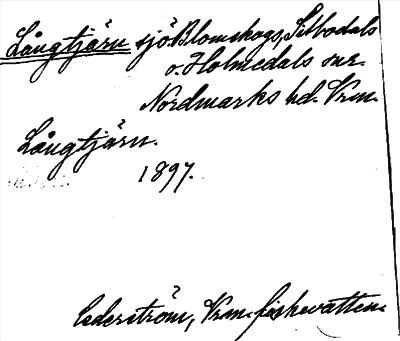 Långtjärn sjö Blomskogs, Silbodals
o. Holmedals snr.
Nordmarks hd. Vrm.
Långtjärn.
1897.
Cederström, Vrm. fiskevatten.